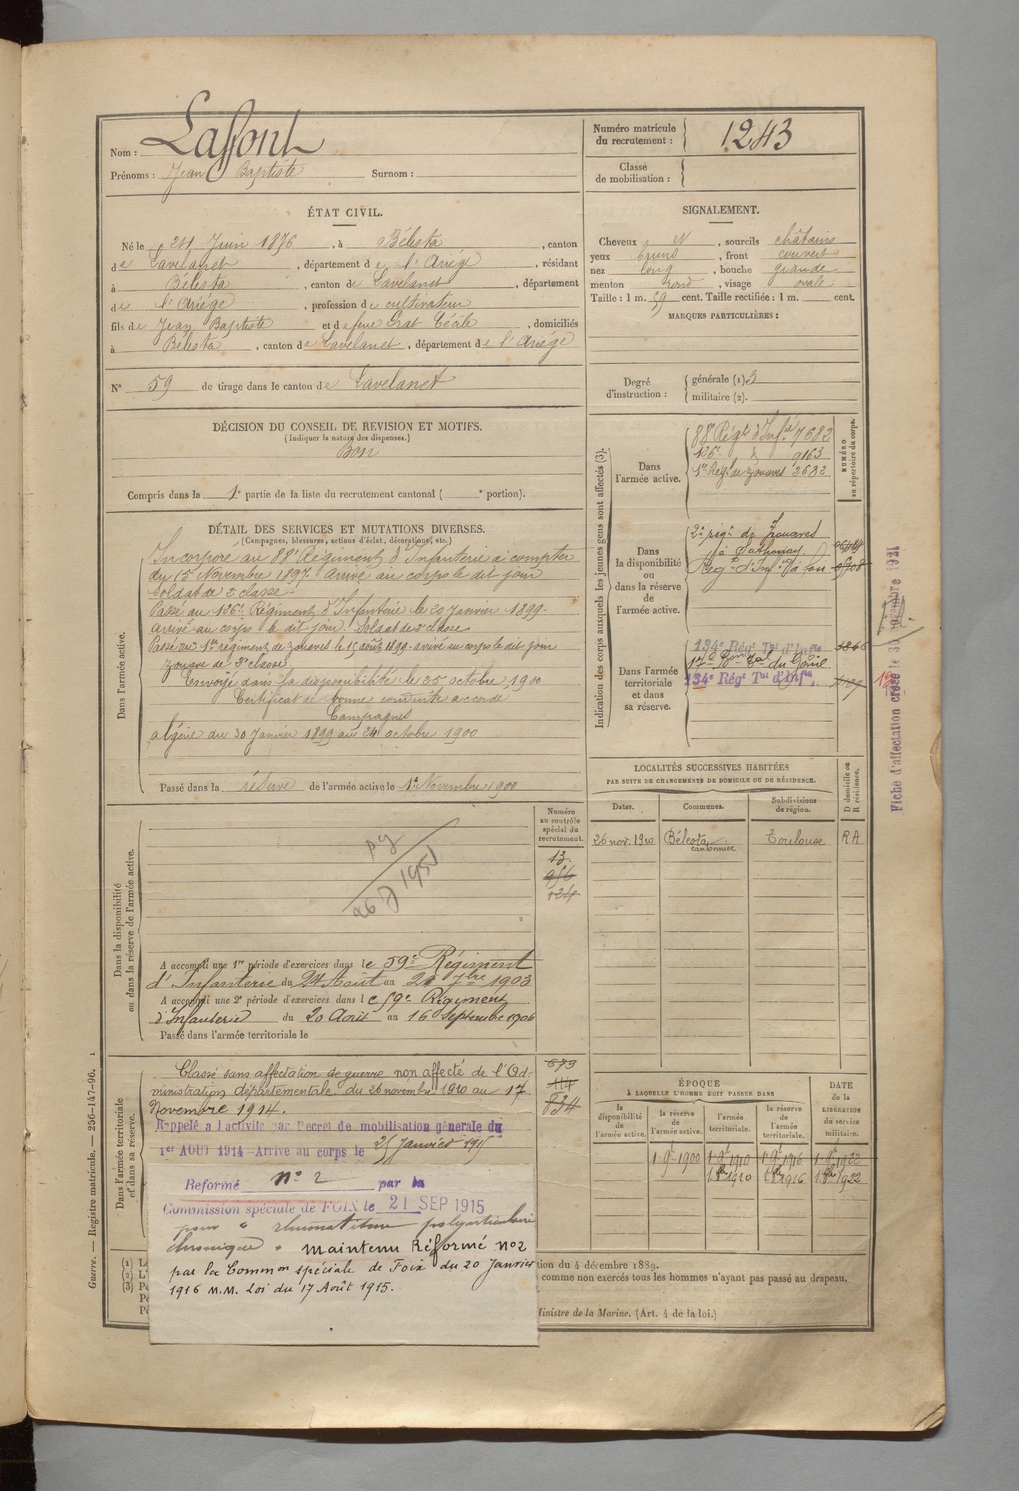 Nom : Lafont
Prénoms : Jean Baptiste Surnom :
Numéro matricule du recrutement : 1243
Classe de mobilisation :
ÉTAT CIVIL.
Né le 24 Juin 1876, à Bélesta, canton
de Lavelanet, département de l'Ariége, résidant
à Bélesta, canton de Lavelanet, département
de l'Ariége, profession de cultivateur
fils de Jean Baptiste et de feue Grat Cécile, domiciliés
à Bélesta, canton de Lavelanet, département de l'Ariége
N° 59 de tirage dans le canton de Lavelanet
SIGNALEMENT.
Cheveux N, sourcils châtains
yeux bruns, front couvert
nez long, bouche grande
menton rond, visage ovale
Taille : 1 m. 59 cent. Taille rectifiée : 1 m. cent.
MARQUES PARTICULIÈRES :
Degré d'instruction : générale (1). 3
militaire (2).
DÉCISION DU CONSEIL DE REVISION ET MOTIFS.
(Indiquer la nature des dispenses.)
Bon
Compris dans la 1e partie de la liste du recrutement cantonal ( e portion).
DÉTAIL DES SERVICES ET MUTATIONS DIVERSES.
(Campagnes, blessures, actions d'éclat, décorations, etc.)
Dans l'armée active.
Incorporé au 88e Régiment d'Infanterie à compter
du 15 Novembre 1897. Arrivé au corps le dit jour
Soldat de 2e classe.
Passé au 126e Régiment d'Infanterie le 30 Janvier 1899.
Arrivé au corps le dit jour. Soldat de 2e classe
Passé au 1er régiment de zouaves le 15 août 1899. arrivé au corps le dit jour
zouave de 2e classe.
Envoyé dans la disponibilité le 25 octobre 1900
Certificat de bonne conduite accordé
Campagnes
Algérie du 30 Janvier 1899 au 24 octobre 1900
Passé dans la réserve de l'armée active le 1er Novembre 1900
Indication des corps auxquels les jeunes gens sont affectés (3).
NUMÉRO au répertoire du corps.
Dans l'armée active.
88e Régt d'Infie 7682
126e d° 9163
1er Régt de zouaves 3682
Dans la disponibilité ou dans la réserve de l'armée active.
2e régt de Zouaves
à Sathonay
Régt d'Inf.
Dans l'armée territoriale et dans sa réserve.
134e Régt Tal d'Infie
17e Bon Tal du Génie
134e Régt Tal d'Infie.
Fiche d'affectation créée le
LOCALITÉS SUCCESSIVES HABITÉES
PAR SUITE DE CHANGEMENTS DE DOMICILE OU DE RÉSIDENCE.
Dates. Communes. Subdivisions de région. D domicile ou R résidence.
26 nov. 1910 Bélesta cantonnier Toulouse RA
Numéro au contrôle spécial du recrutement.
13
956
124
Dans la disponibilité ou dans la réserve de l'armée active.
A accompli une 1re période d'exercices dans le 59e Régiment
d'Infanterie du 24 Août au 20 7bre 1903
A accompli une 2e période d'exercices dans le 59e Régiment
d'Infanterie du 20 Août au 16 Septembre 1906
Passé dans l'armée territoriale le
Dans l'armée territoriale et dans sa réserve.
Classé sans affectation de guerre non affecté de l'Ad-
ministration départementale. du 26 novembre 1910 au 17
Novembre 1914.
Rappelé à l'activité par Décret de mobilisation générale du
1er AOUT 1914 - Arrivé au corps le 25 Janvier 1915
Reformé n° 2 par la
Commission spéciale de FOIX le 21 SEP 1915
pour "rhumatisme polyarticulaire
chronique" Maintenu Réformé n°2
par la Common spéciale de Foix du 20 Janvier
1916 M.M. Loi du 17 Août 1915.
679
114
834
ÉPOQUE
À LAQUELLE L'HOMME DOIT PASSER DANS
la disponibilité de l'armée active. la réserve de l'armée active. l'armée territoriale. la réserve de l'armée territoriale. DATE de la LIBÉRATION du service militaire.
1 9 1900 1 9 1910 1 9 1916 1 9 1922
1 8bre 1910 1 8bre 1916 1 8bre 1922
tion du 4 décembre 1889.
comme non exercés tous les hommes n'ayant pas passé au drapeau.
Ministre de la Marine. (Art. 4 de la loi.)
Guerre. — Registre matricule. — 256-147-96.